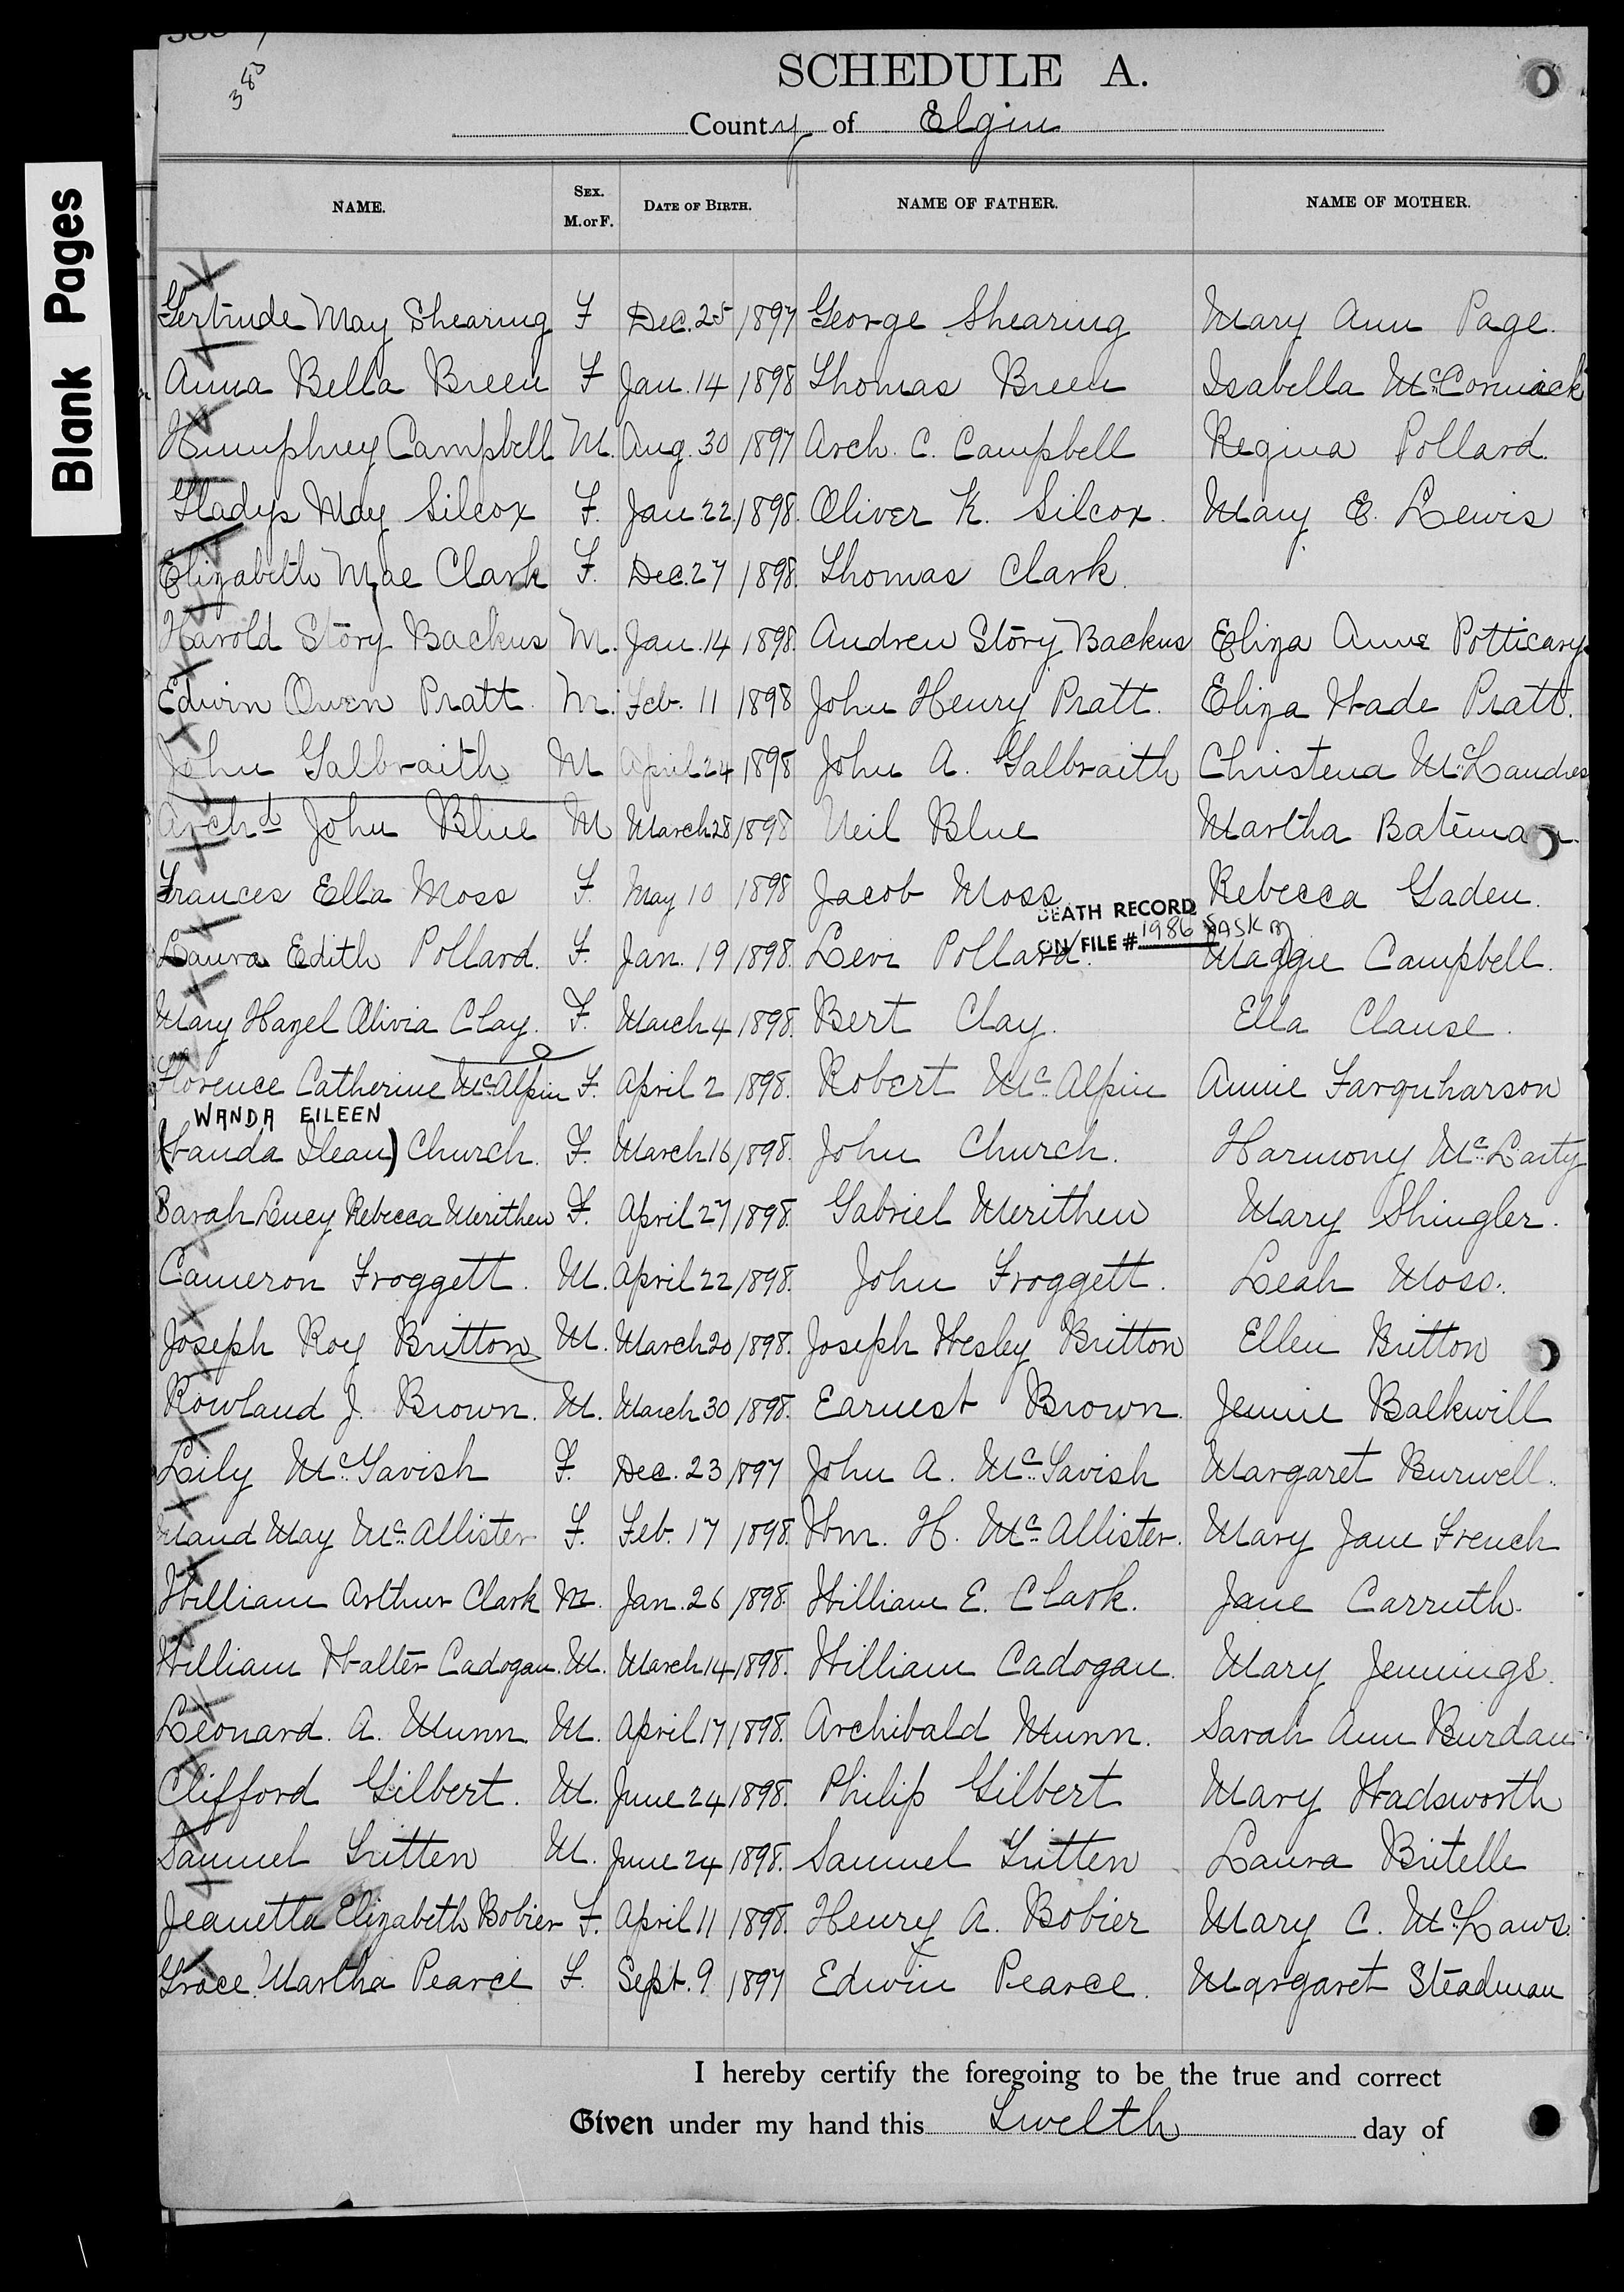 383
SCHEDULE A.
County of Elgin
Blank Pages
NAME. SEX. M. or F. DATE OF BIRTH. NAME OF FATHER. NAME OF MOTHER.
Gertrude May Shearing F Dec. 25 1897 George Shearing Mary Ann Page.
Anna Bella Breen F Jan. 14 1898 Thomas Breen Isabella McCormack
Humphrey Campbell M. Aug. 30 1897 Arch. C. Campbell Regina Pollard.
Gladys May Silcox F. Jan 22 1898. Oliver K. Silcox. Mary E. Lewis
Elizabeth Mae Clark F. Dec. 27 1898. Thomas Clark.
Harold Story Backus M. Jan. 14 1898. Andrew Story Backus Eliza Anne Potticary
Edwin Owen Pratt. M. Feb. 11 1898 John Henry Pratt. Eliza Wade Pratt.
John Galbraith M April 24 1898 John A. Galbraith Christena McLandres
Archd John Blue M March 28 1898 Neil Blue Martha Bateman.
Frances Ella Moss F. May 10 1898 Jacob Moss Rebecca Gaden.
DEATH RECORD
ON FILE # 1986 SASK
Laura Edith Pollard. F. Jan. 19 1898. Levi Pollard. Maggie Campbell.
Mary Hazel Olivia Clay. F. March 4 1898. Bert Clay. Ella Clause.
Florence Catherine McAlpin F. April 2 1898. Robert McAlpin Annie Farquharson
WANDA EILEEN
(Wanda Ilean) Church. F. March 16 1898. John Church. Harmony McLarty
Sarah Lucy Rebecca Merithew F. April 27 1898. Gabriel Merithew Mary Shingler.
Cameron Froggett. M. April 22 1898. John Froggett. Leah Moss.
Joseph Roy Britton M. March 20 1898. Joseph Wesley Britton Ellen Britton
Rowland J. Brown. M. March 30 1898. Earnest Brown. Jennie Balkwill
Lily McTavish F. Dec. 23 1897 John A. McTavish Margaret Burwell.
Maud May McAllister F. Feb. 17 1898. Wm. H. McAllister. Mary Jane French
William Arthur Clark M. Jan. 26 1898. William E. Clark. Jane Carruth.
William Walter Cadogan. M. March 14 1898. William Cadogan. Mary Jennings.
Leonard. A. Munn. M. April 17 1898. Archibald Munn. Sarah Ann Burdan
Clifford Gilbert. M. June 24 1898. Philip Gilbert Mary Wadsworth
Samuel Tritten M. June 24 1898. Samuel Tritten Laura Britelle
Jeanetta Elizabeth Bobier F. April 11 1898. Henry A. Bobier Mary C. McLaws.
Grace Martha Pearce F. Sept. 9 1897 Edwin Pearce. Margaret Steadman
I hereby certify the foregoing to be the true and correct
Given under my hand this Twelth day of